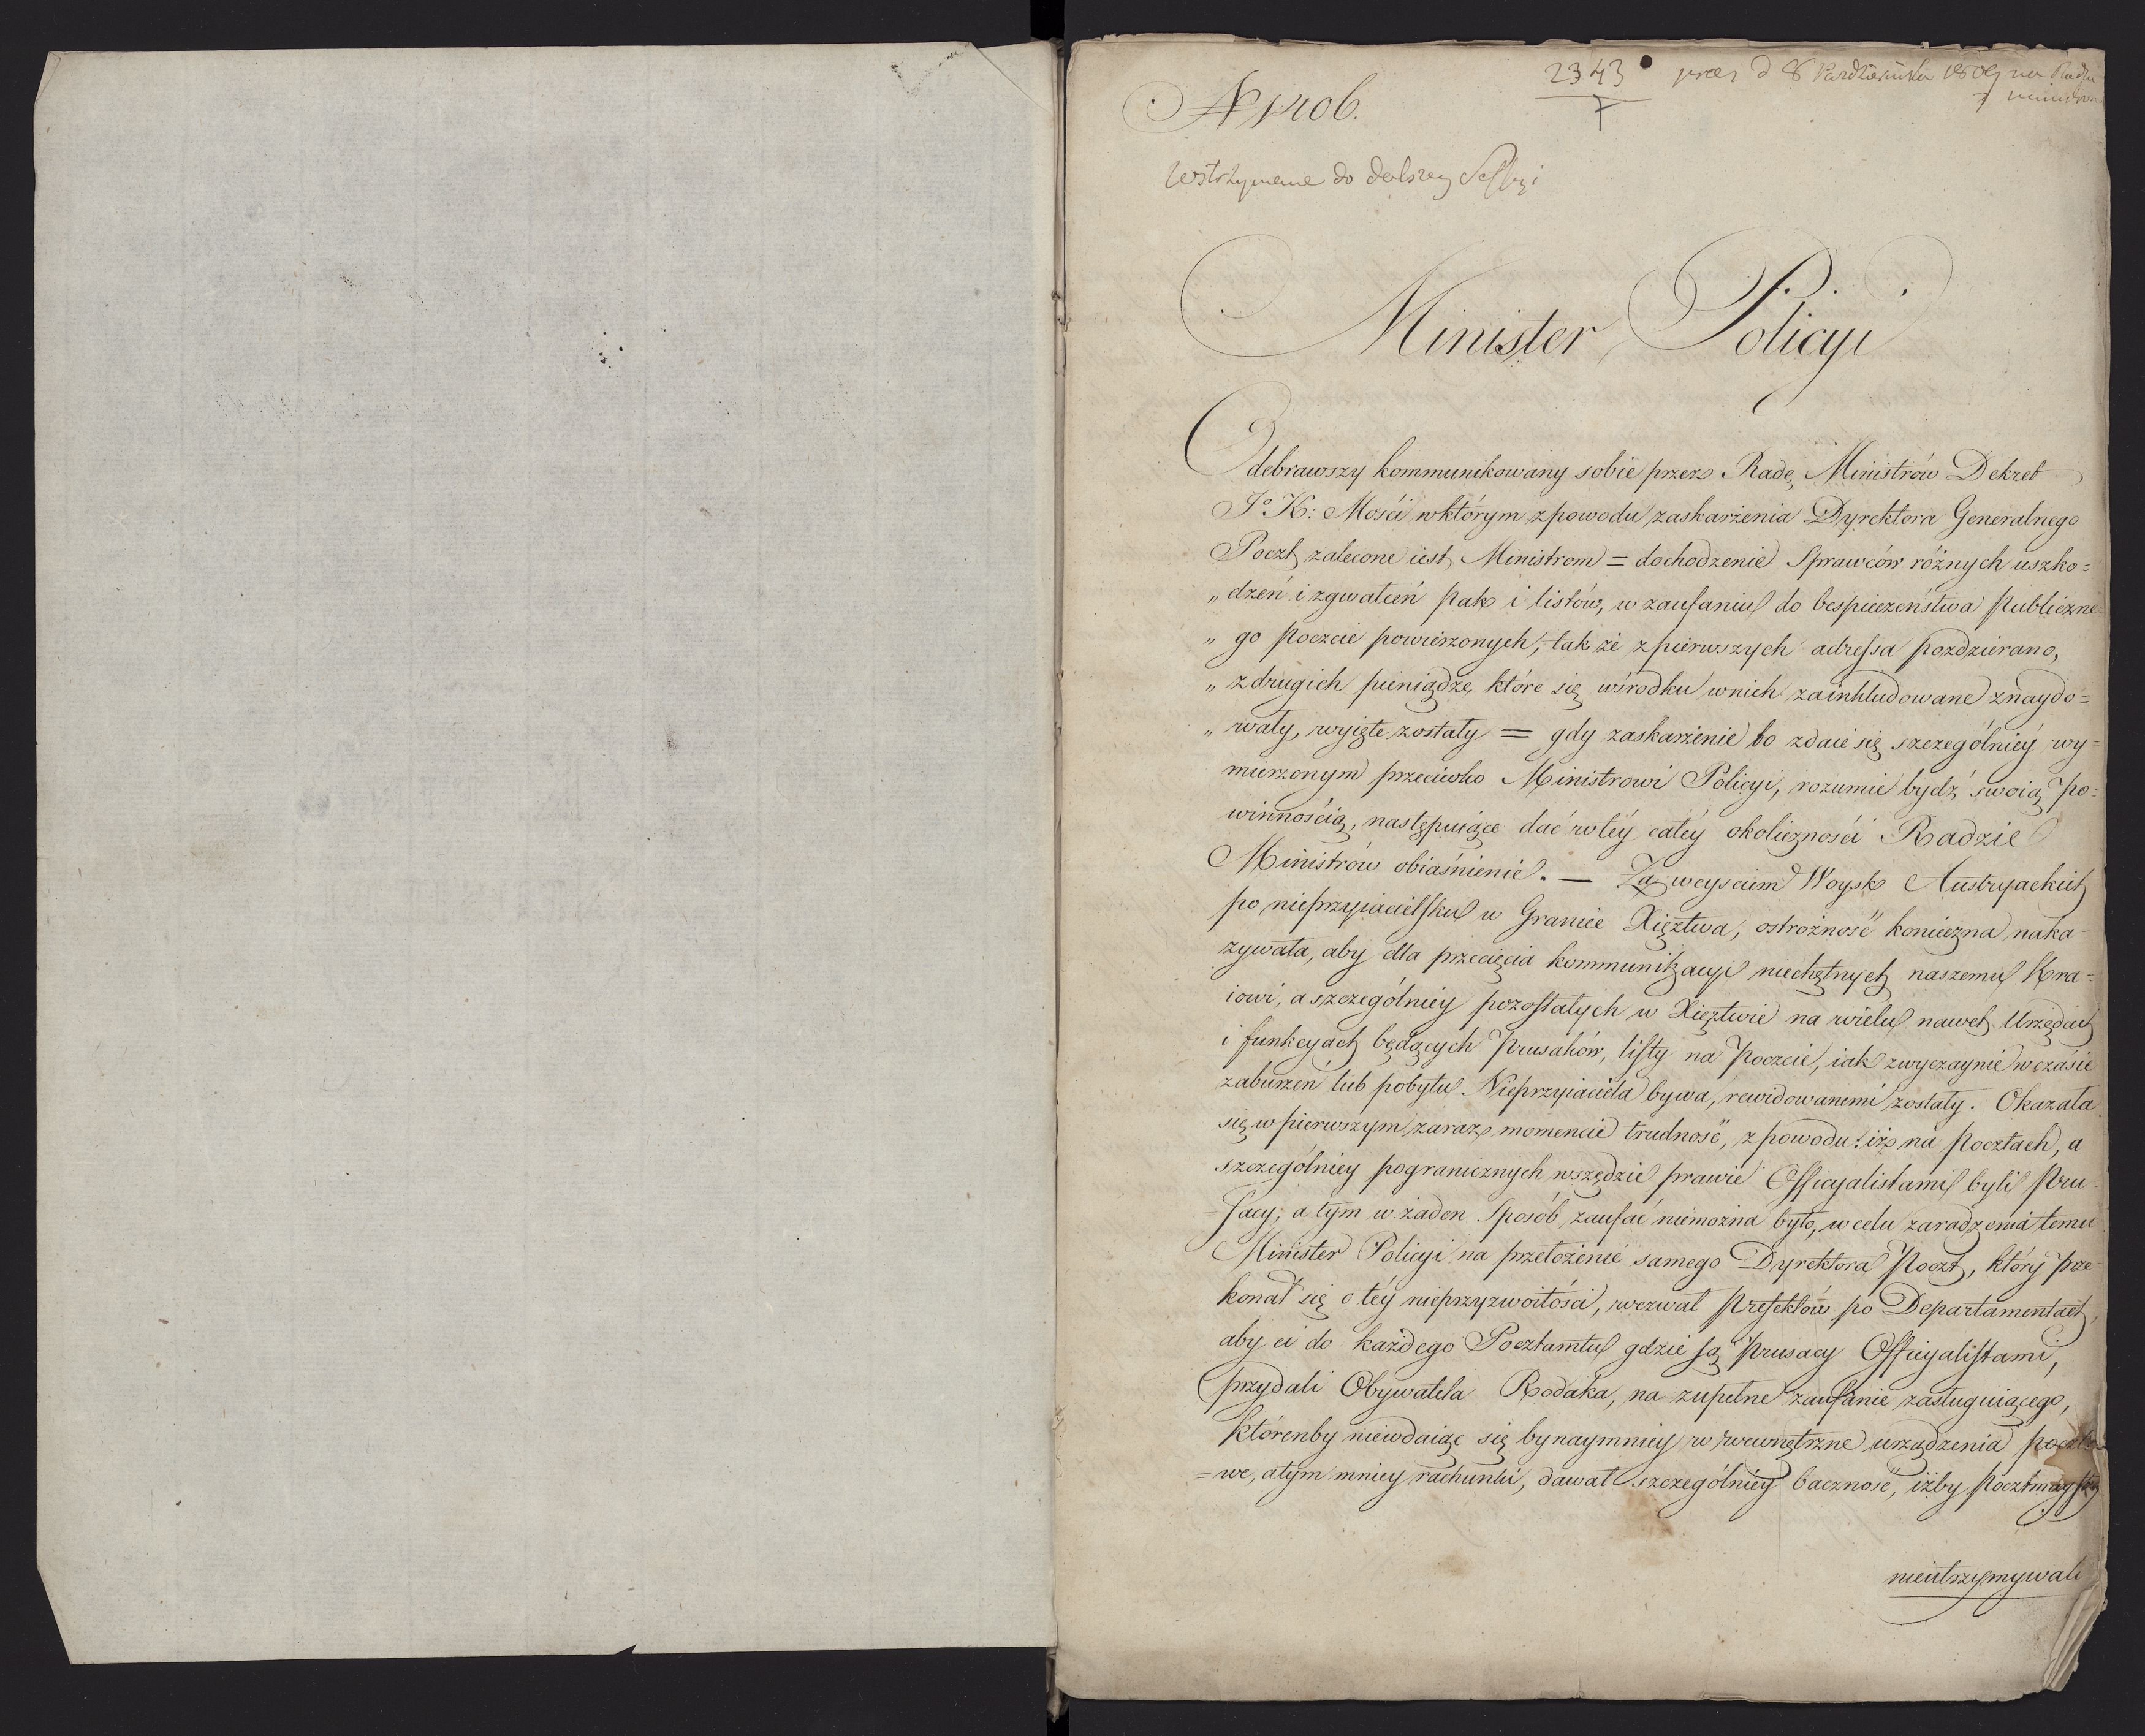 2343 • prez d 8 Pazdziernika 1809 na Radzie
7 ministrow
N 1406.
Wstrzymane do dalszey Sessyi
Minister Policyi
Odebrawszy kommunikowany sobie przez Radę Ministrów Dekret
J: K: Mości wktórym zpowodu zaskarżenia Dyrektora Generalnego
Poczt zalecone iest Ministrom = dochodzenie Sprawców różnych uszko=
„ dzeń i zgwałceń pak i listów, w zaufaniu do bespieczeństwa publiczne=
„ go poczcie powierzonych, tak że zpierwszych adressa pozdzierano,
„ zdrugich pieniądze które się wśrodku wnich zainkludowane znaydo=
„ wały, wyięte zostały = gdy zaskarżenie to zdaie się szczególniey wy=
mierzonym przeciwko Ministrowi Policyi, rozumie bydź swoią po=
winnością, następuiące dać wtéy całéy okoliczności Radzie
Ministrów obiaśnienie. — Za weyściem Woysk Austryackich
po nieprzyiacielsku w Granice Xięztwa, ostrożność konieczna naka=
zywała, aby dla przecięcia kommunikacyi niechętnych naszemu Kra=
iowi, a szczególniey pozostałych w Xięztwie na wielu nawet Urzędach
i funkcyach będących Prusaków, listy na Poczcie, iak zwyczaynie wczasie
zaburzeń lub pobytu Nieprzyiaciela bywa, rewidowanemi zostały. Okazała
się w pierwszym zaraz momencie trudność, z powodu: iż na Pocztach, a
szczególniey pogranicznych wszędzie prawie Officyalistami byli Pru=
sacy, a tym w żaden Sposób zaufać niemożna było, w celu zaradzenia temu
Minister Policyi na przełożenie samego Dyrektora Poczt, który prze=
konał się o téy nieprzyzwoitości, wezwał Prefektów po Departamentach,
aby ci do każdego Pocztamtu gdzie są Prusacy Officyalistami,
przydali Obywatela Rodaka, na zupełne zaufanie zasługuiącego,
którenby niewdaiąc się bynaymniey w wewnętrzne urządzenia poczto
= we, atym mniey rachunki, dawał szczególniey baczność, iżby Pocztmaystrz
nieutrzymywali